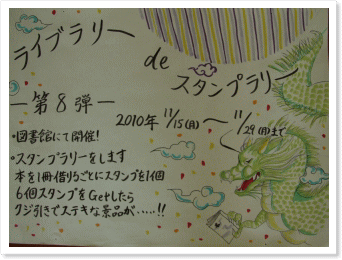 ライブラリー
de
スタンプラリー
ー第8弾ー
2010年 11/15(月)〜11/29(月)まで
・図書館にて開催!
・スタンプラリーをします
本を1冊借りるごとにスタンプを1個
6個スタンプをGetしたら
クジ引きでステキな景品が・・・・!!